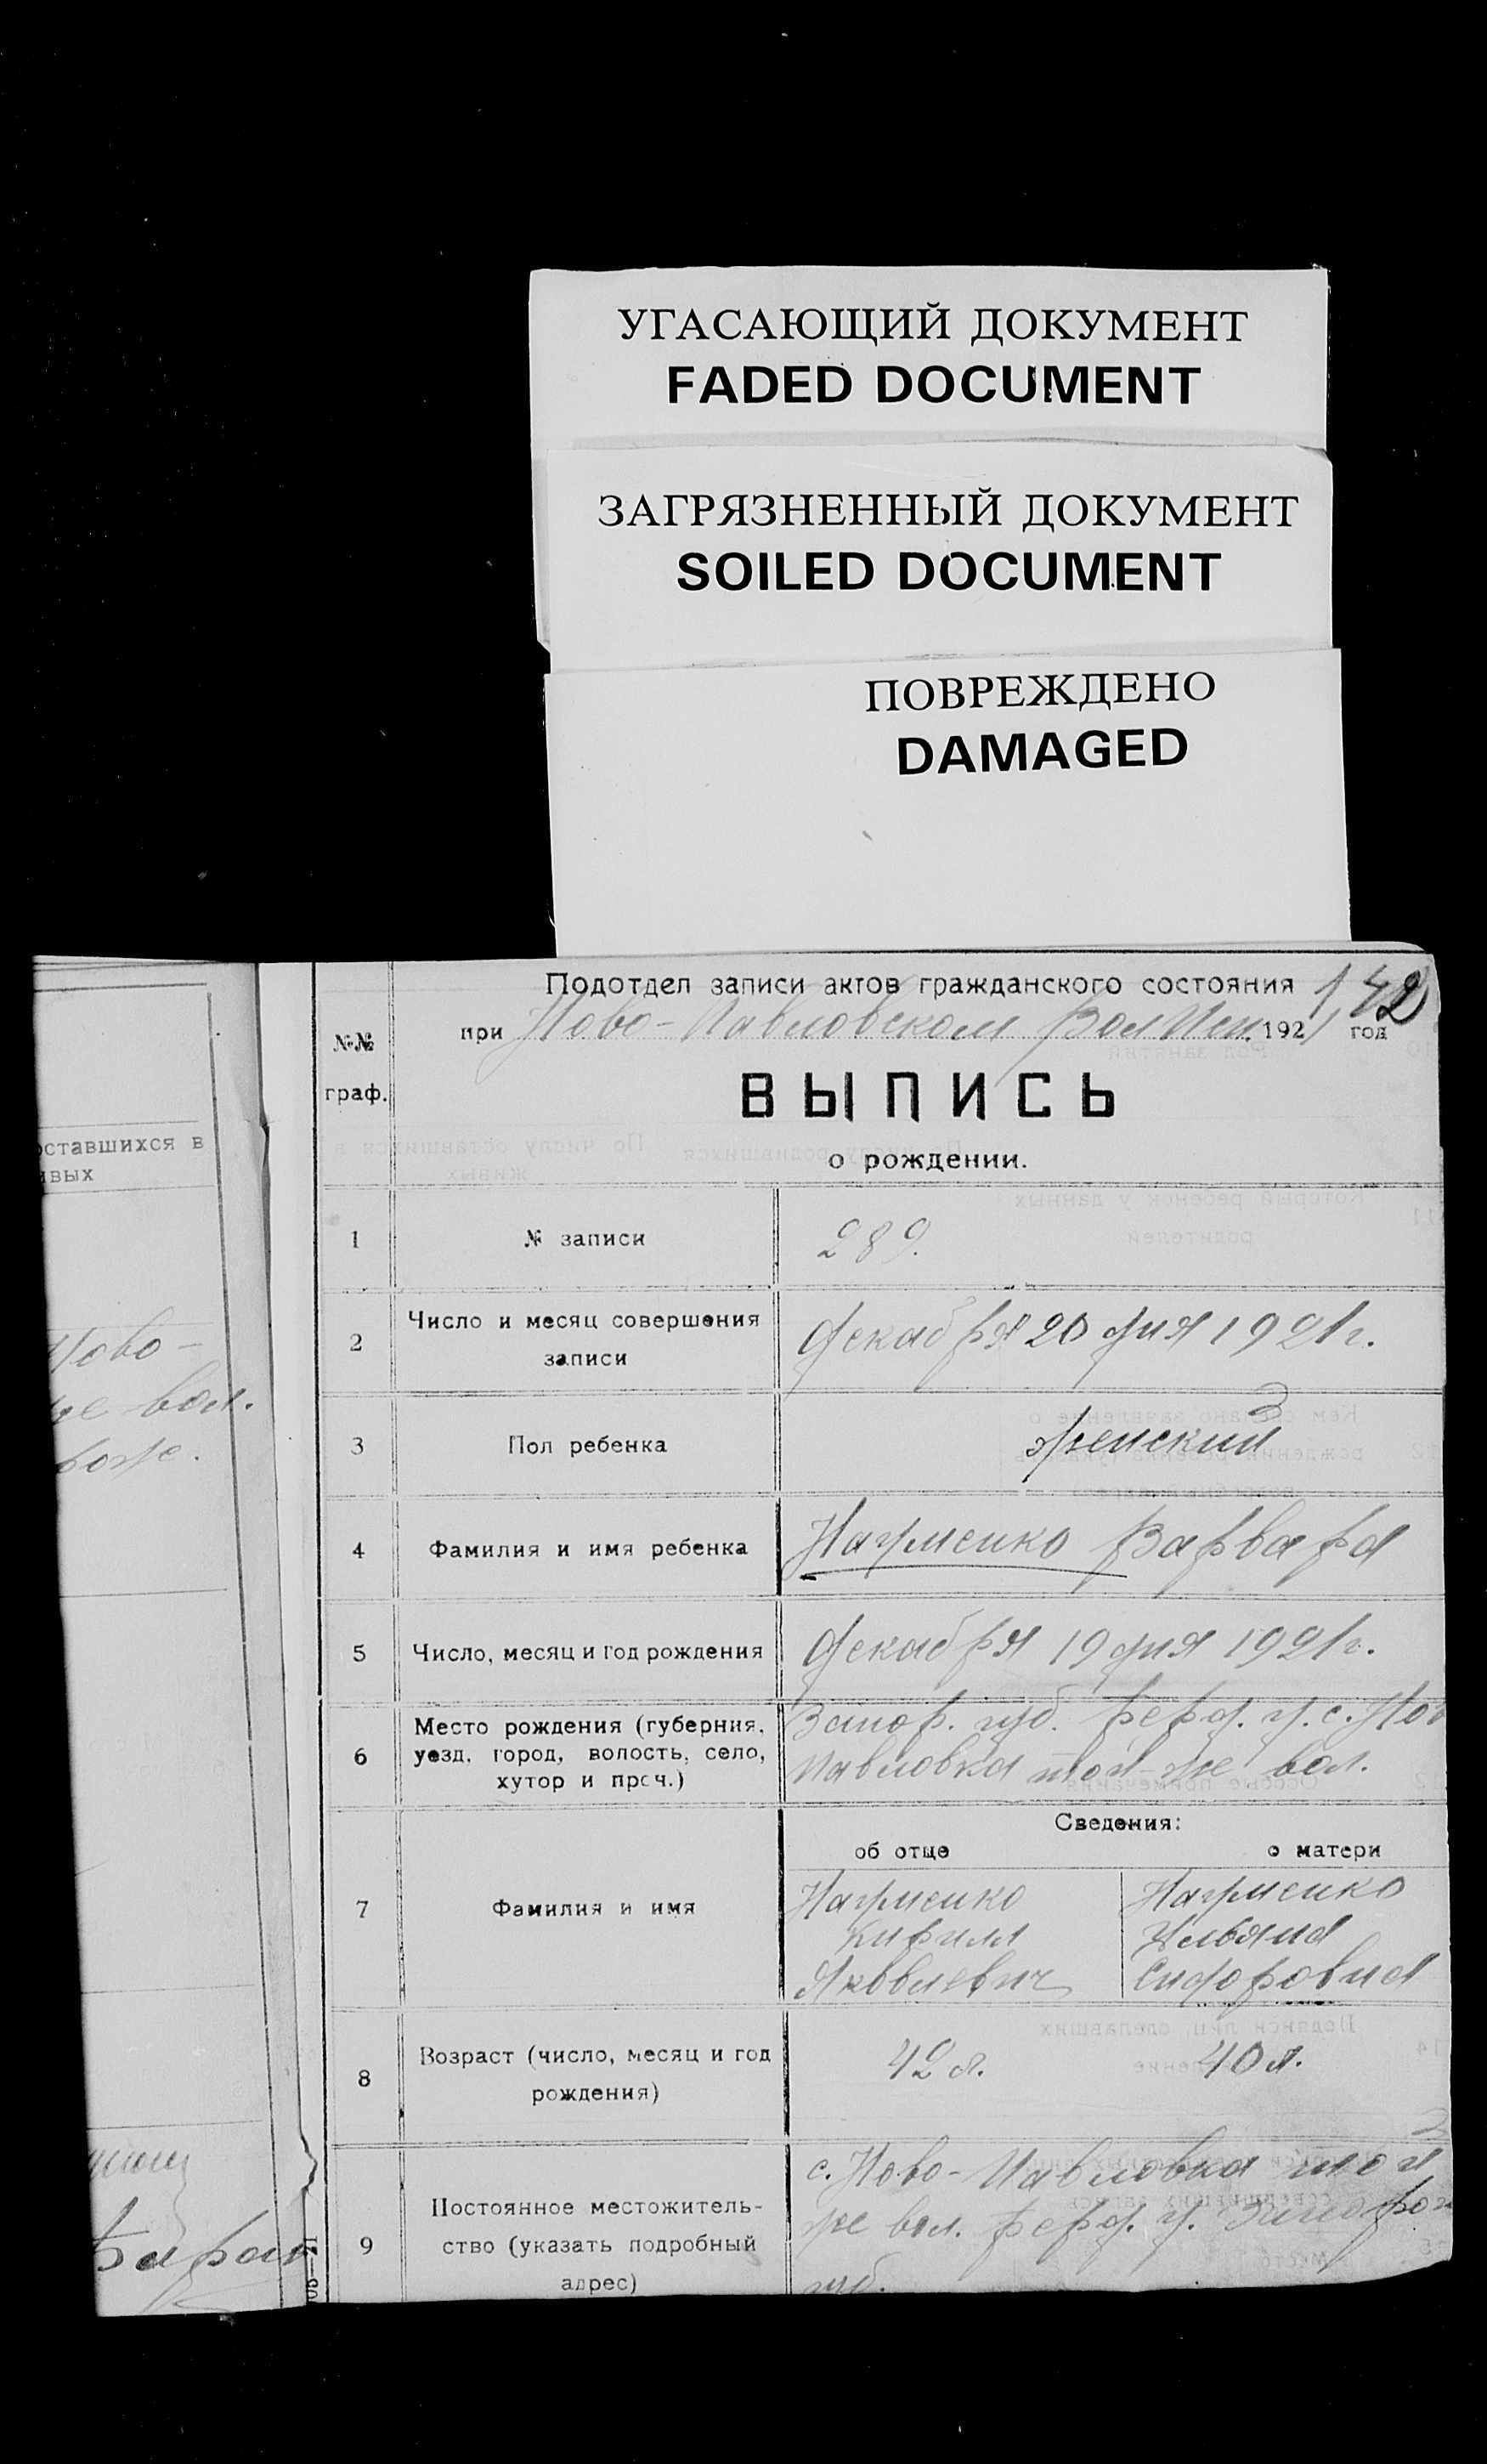 УГАСАЮЩИЙ ДОКУМЕНТ
FADED DOCUMENT
ЗАГРЯЗНЕННЫЙ ДОКУМЕНТ
SOILED DOCUMENT
ПОВРЕЖДЕНО
DAMAGED
оставшихся в
ивых
Ново-
же вол.
№№
граф.
Подотдел записи актов гражданского состояния
142
при Ново-Павловском Вол Исп. 1921 год
ВЫПИСЬ
о рождении.
1 № записи 289.
2 Число и месяц совершения
записи
Декабря 20 дня 1921 г.
3 Пол ребенка женский
4 Фамилия и имя ребенка Варвара
5 Число, месяц и год рождения Декабря 19 дня 1921 г.
6 Место рождения (губерния,
уезд, город, волость, село,
хутор и проч.)
Запор. губ. Берд. у. с. Ново
Павловка той-же вол.
Сведения:
об отце о матери
7 Фамилия и имя
Кирилл
Яковлевич
Ульяна
Сидоровна
8 Возраст (число, месяц и год
рождения)
42 л. 40 л.
9 Постоянное местожитель-
ство (указать подробный
адрес)
с. Ново-Павловка той
же вол. Берд. у. Запорож
губ.